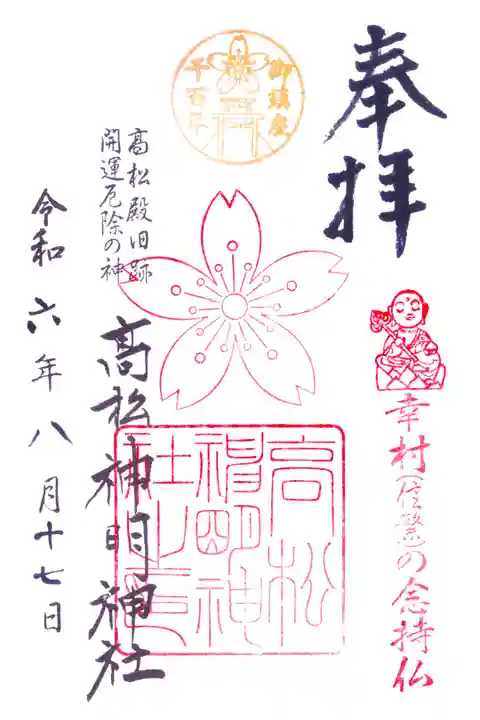 奉拝
御鎮座
千百年
幸村(信繁)の念持仏
高松神明神社
高松殿旧跡
開運厄除の神
髙松神明神社
令和六年八月十七日